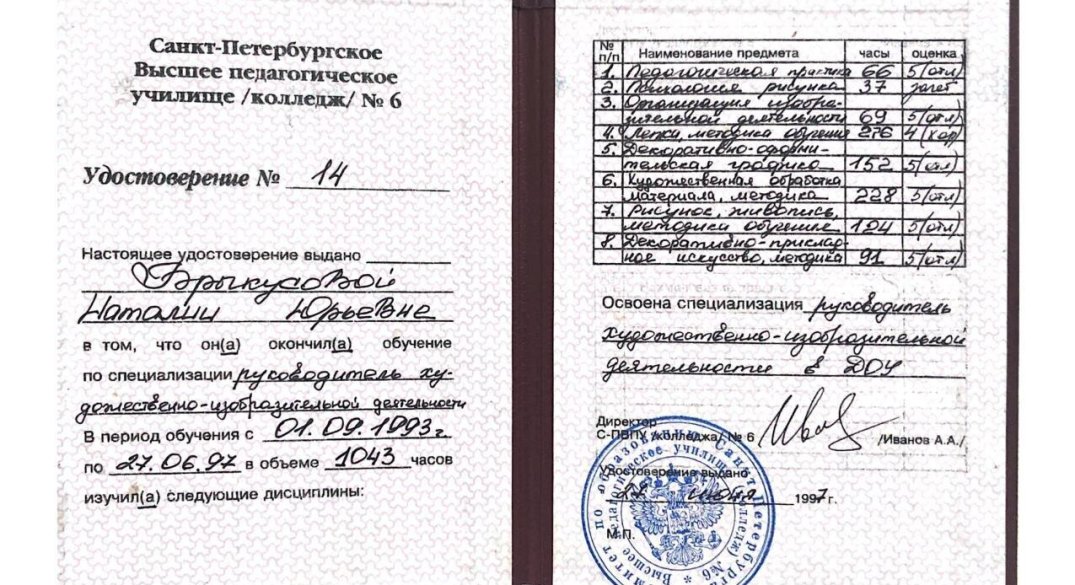 Санкт-Петербургское
Высшее педагогическое
училище /колледж/ № 6
Удостоверение № 14
Настоящее удостоверение выдано
Брыкусовой
Наталии Юрьевне
в том, что он(а) окончил(а) обучение
по специализации руководитель ху-
дожественно-изобразительной деятельности
В период обучения с 01.09.1993г.
по 27.06.97 в объеме 1043 часов
изучил(а) следующие дисциплины:
№ п/п Наименование предмета часы оценка
1. Педагогическая практика 66 5(отл)
2. Психология рисунка 37 зачет
3. Организация изобра-
зительной деятельности 69 5(отл)
4. Лепка, методика обучения 276 4(хор)
5. Декоративно-оформи-
тельская графика 152 5(отл)
6. Художественная обработка
материала, методика 228 5(отл)
7. Рисунок, живопись,
методики обучения 124 5(отл)
8. Декоративно-приклад-
ное искусство, методика 91 5(отл)
Освоена специализация руководитель
художественно-изобразительной
деятельности в ДОУ
Директор
С-ПВПУ /колледжа/ № 6 /Иванов А.А./
Удостоверение выдано
27 июня 1997г.
М.П.